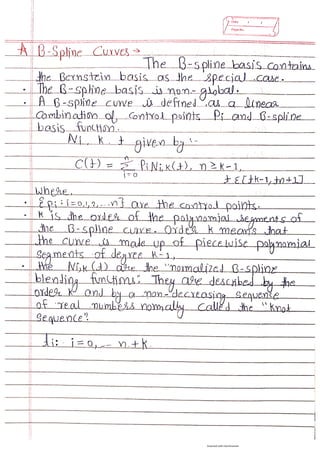 Date
A B-Spline Curves →
The B-spline basis contains
the Bernstein basis as the special case.
• The B-spline basis is non-global.
• A B-spline curve is defined as a linear
Combination of control points Pi and B-spline
basis function.
Ni, k, t given by :-
C(t) = n Σ i=0 Pi Ni,k(t), n ≥ k-1,
t ε [tk-1, tn+1]
Where,
• {Pi : i=0,1,2,...n} are the control points.
• K is the order of the polynomial segments of
the B-spline curve. Order k means that
the curve is made up of piecewise polynomial
segments of degree k-1,
• the Ni,k (t) are the "normalized B-spline
blending functions". They are described by the
order k and by a non-decreasing sequence
of real numbers normally called the "knot
sequence".
ti: i=0, -- n+k
Scanned with CamScanner